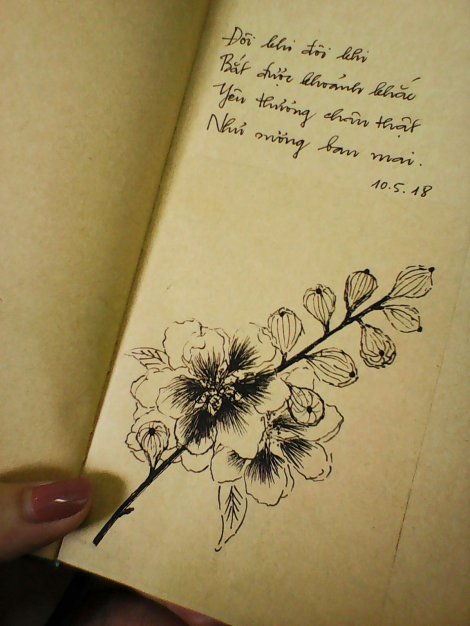 Đôi khi đôi khi
Bắt được khoảnh khắc
Yêu thương chân thật
Như mộng ban mai.
10.5.18